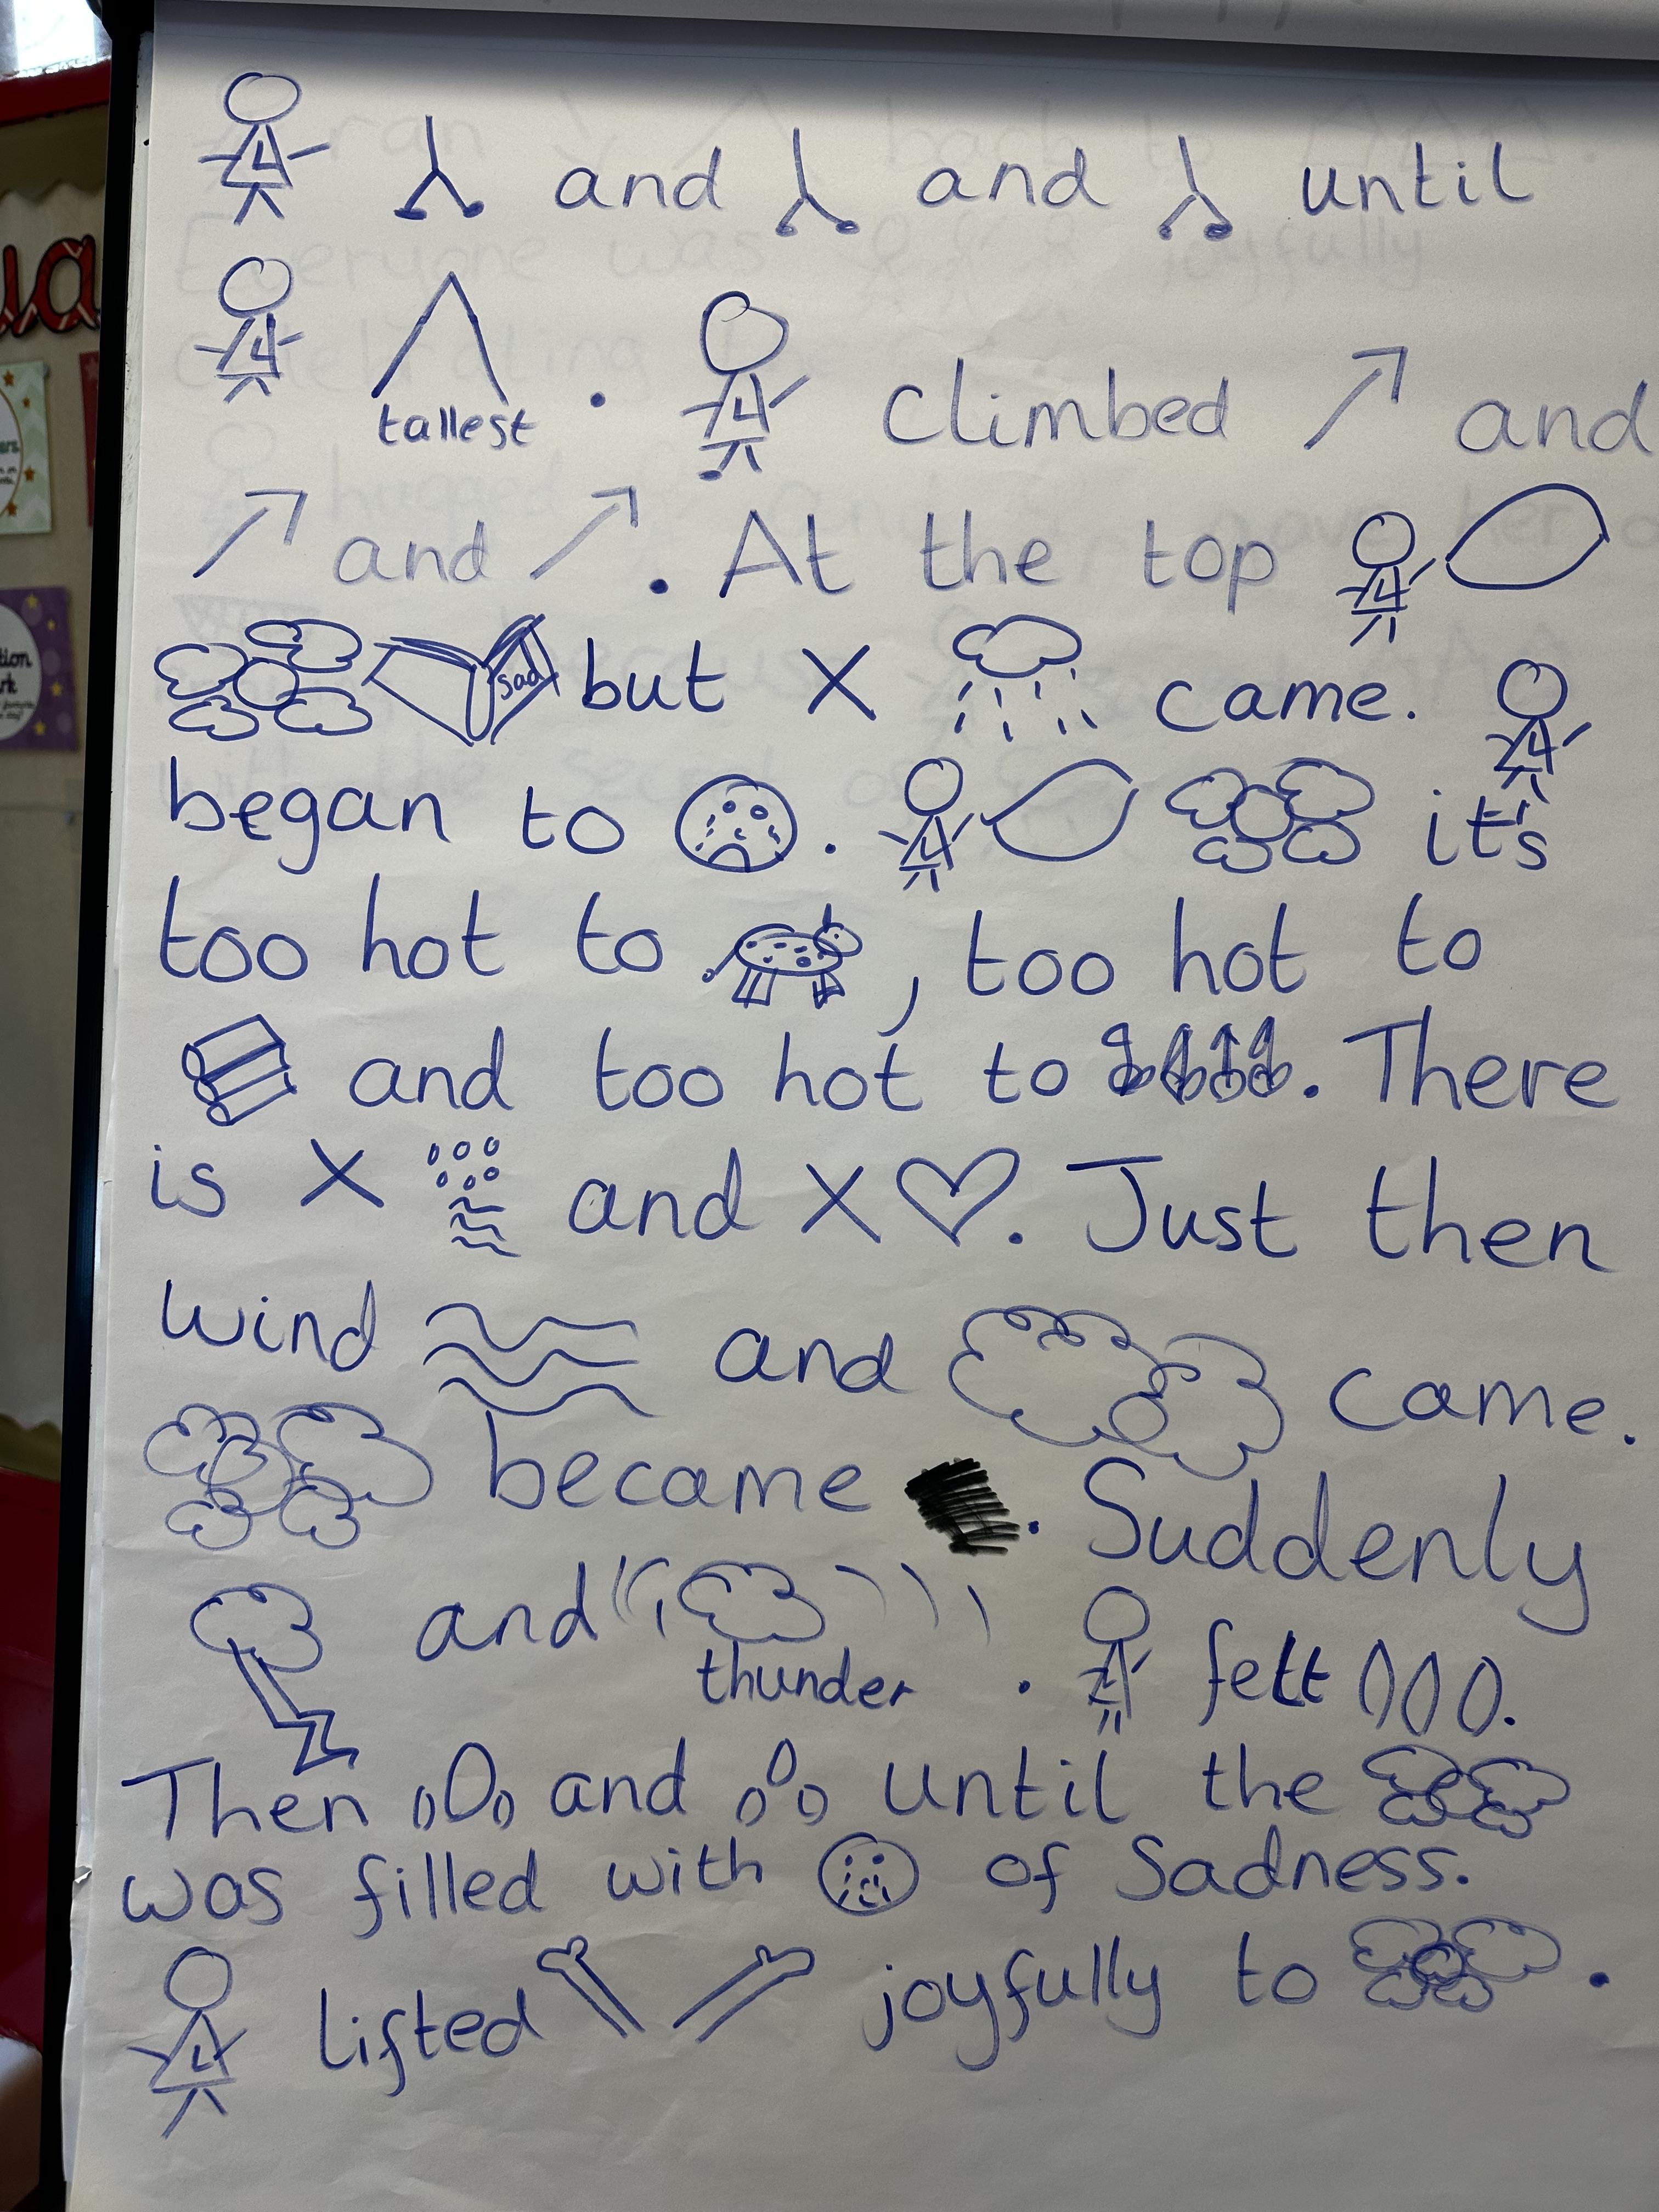 and and until
tallest . climbed and
and . At the top
sad but X came.
began to . it's
too hot to , too hot to
and too hot to . There
is X and X . Just then
wind and came.
became . Suddenly
and thunder . felt .
Then and until the
was filled with of Sadness.
lifted joyfully to .